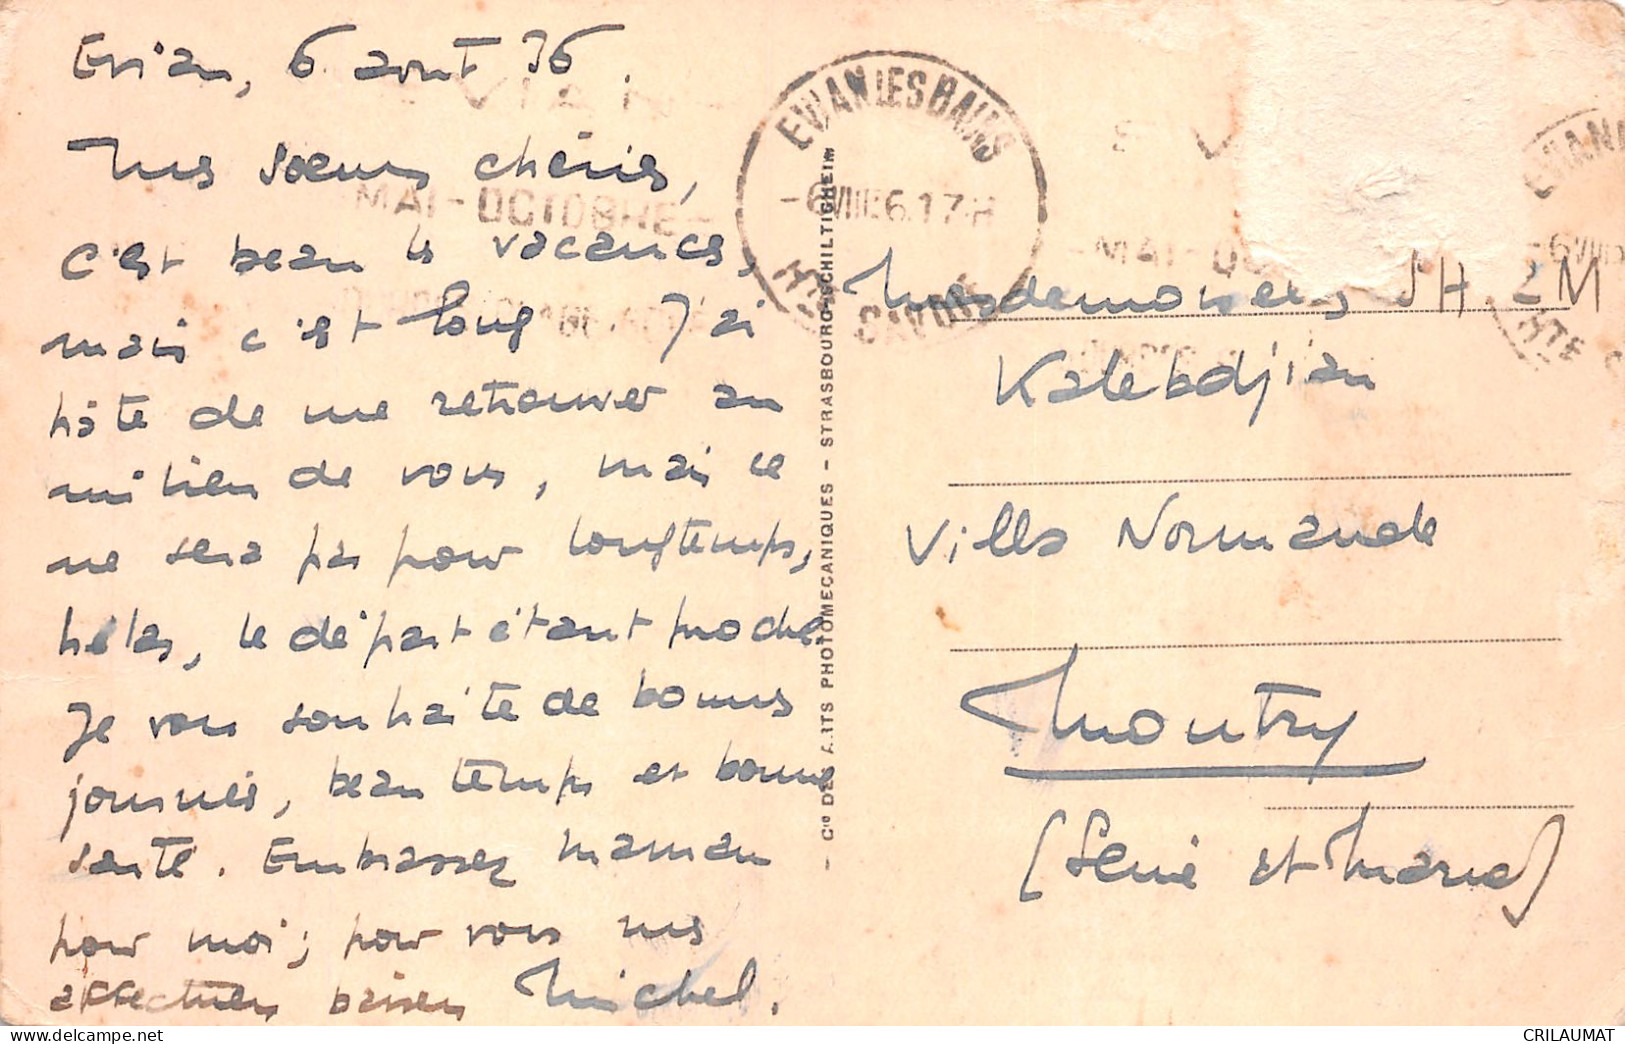 Evian, 6 août 36.
Mes soeurs chéries,
c'est beau les vacances,
mais c'est long J'ai
hâte de me retrouver au
milieu de vous, mais ce
ne sera pas pour longtemps,
hélas, le départ étant proche
Je vous souhaite de bonnes
journées, beau temps et bonne
santé. Embrassez maman
pour moi; pour vous mes
affectueux baisers Michel.
- Cie DES ARTS PHOTOMECANIQUES - STRASBOURG-SCHILTIGHEIM
EVIAN LES BAINS
-6 VIII 36. 17 H
HTE SAVOIE
MAI-OCTOBRE-
Mesdemoiselles
Kalebdjian
Villa Normande
Montry
(Seine et Marne)
EVIAN
-MAI-
HTE
CRILAUMAT